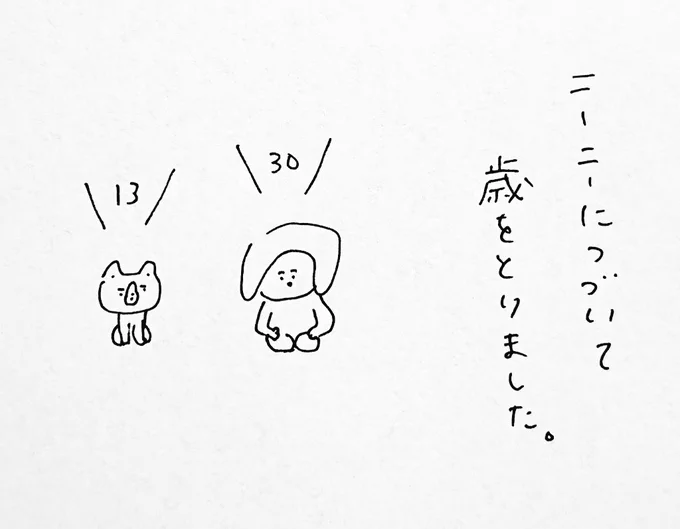 ニーニーにつづいて
歳をとりました。
13
30